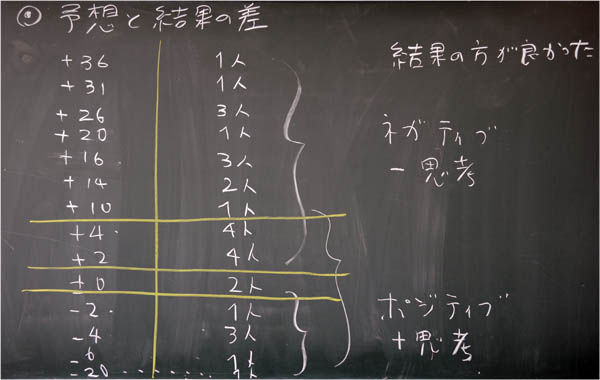 ◎ 予想と結果の差
+36 1人
+31 1人
+26 3人
+20 1人
+16 3人
+14 2人
+10 1人
+4 4人
+2 4人
+0 2人
-2 1人
-4 3人
-6 1人
-20 1人
結果の方が良かった
ネガティブ
－思考
ポジティブ
＋思考